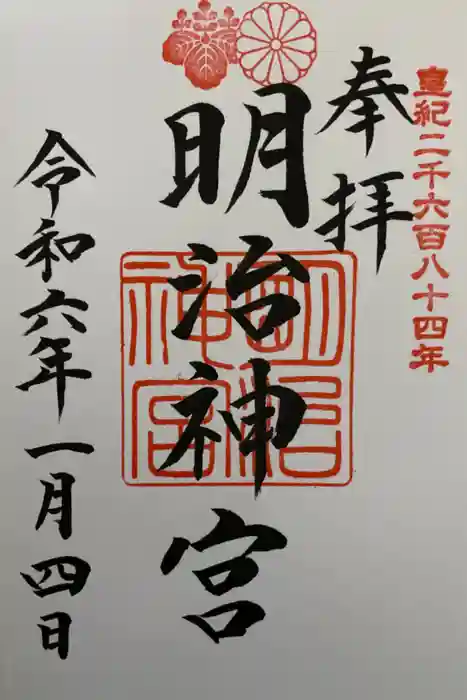 皇紀二千六百八十四年
奉拝
明治神宮
明治神宮
令和六年一月四日